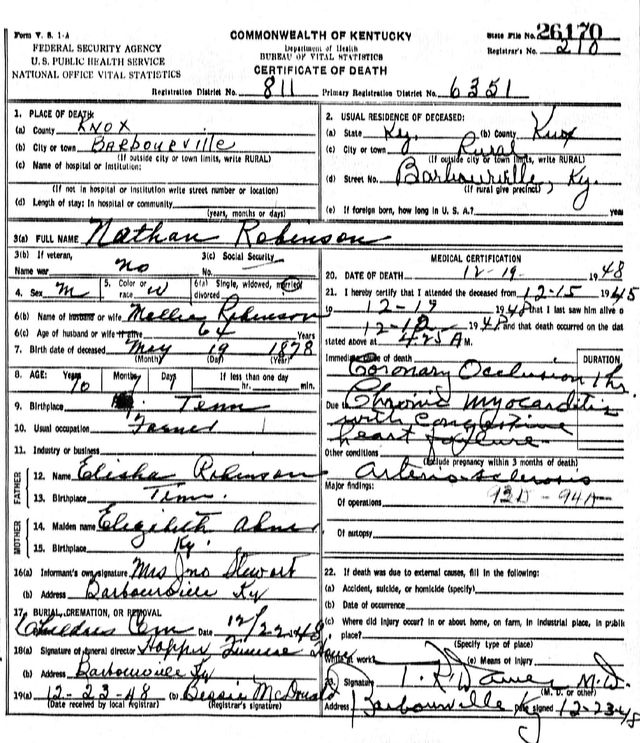 Form V. S. 1-A
FEDERAL SECURITY AGENCY
U. S. PUBLIC HEALTH SERVICE
NATIONAL OFFICE VITAL STATISTICS
COMMONWEALTH OF KENTUCKY
Department of Health
BUREAU OF VITAL STATISTICS
CERTIFICATE OF DEATH
State File No. 26170
Registrar's No. 210
Registration District No. 811 Primary Registration District No. 6351
1. PLACE OF DEATH:
(a) County KNOX
(b) City or town BARBOURVILLE
(If outside city or town limits, write RURAL)
(c) Name of hospital or institution:
(If not in hospital or institution write street number or location)
(d) Length of stay: In hospital or community
(years, months or days)
2. USUAL RESIDENCE OF DECEASED:
(a) State Ky. (b) County Knox
(c) City or town Rural
(If outside city or town limits, write RURAL)
(d) Street No. Barbourville, Ky.
(If rural give precinct)
(e) If foreign born, how long in U. S. A.? year
3(a) FULL NAME Nathan Robinson
3(b) If veteran, Name war no
3(c) Social Security No.
4. Sex M 5. Color or race W 6(a) Single, widowed, married, divorced
6(b) Name of husband or wife Mollie Robinson
6(c) Age of husband or wife if alive 64 Years
7. Birth date of deceased May 19 1878
(Month) (Day) (Year)
8. AGE: Years 70 Months Days If less than one day
hr. min.
9. Birthplace Tenn
10. Usual occupation Farmer
11. Industry or business
FATHER
12. Name Elisha Robinson
13. Birthplace Tenn.
MOTHER
14. Maiden name Elizibeth
15. Birthplace Ky.
16(a) Informant's own signature Mrs Jno Stewart
(b) Address Barbourville Ky
17. BURIAL, CREMATION, OR REMOVAL
Childres Cem Date 12/22-48
18(a) Signature of funeral director Hopper Funeral Home
(b) Address Barbourville Ky
19(a) 12-23-48 (b) Bessie McDonald
(Date received by local registrar) (Registrar's signature)
MEDICAL CERTIFICATION
20. DATE OF DEATH 12-19- 1948
21. I hereby certify that I attended the deceased from 12-15 1945
to 12-19 1948 that I last saw him alive o
12-18- 1948 and that death occurred on the dat
stated above at 4:25 A M.
Immediate cause of death DURATION
Coronary Occlusion 1 hr.
Due to Chronic myocarditis
with Congestive
heart failure
Other conditions
(Include pregnancy within 3 months of death)
arterio sclerosis
Major findings: 92D-94A
Of operations
Of autopsy
22. If death was due to external causes, fill in the following:
(a) Accident, suicide, or homicide (specify)
(b) Date of occurrence
(c) Where did injury occur? in or about home, on farm, in industrial place, in public
place?
(Specify type of place)
While at work? (e) Means of Injury
23. Signature M. D.
(M. D. or other)
Address Barbourville Ky Date signed 12-23-48